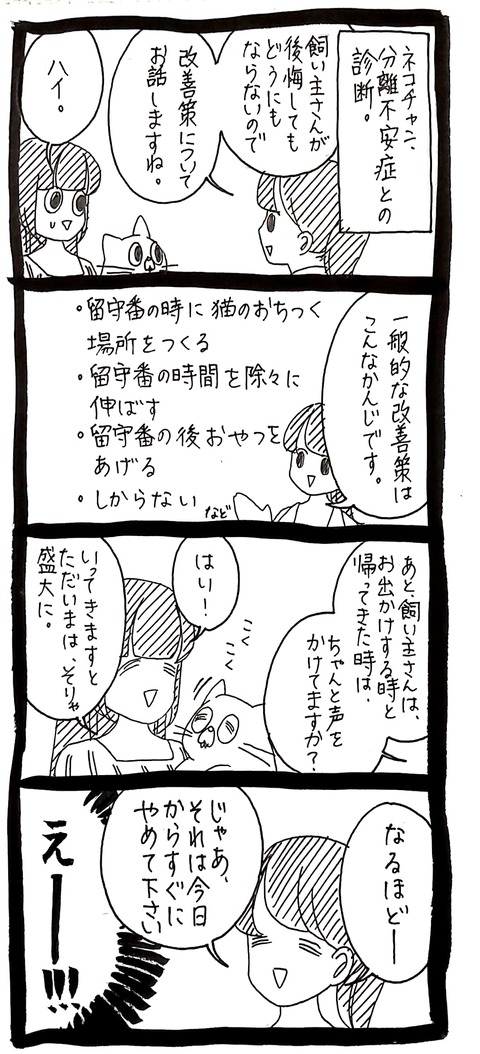 ネコチャン、
分離不安症との
診断。
飼い主さんが
後悔しても
どうにも
ならないので
改善策について
お話しますね。
ハイ。
一般的な改善策は
こんなかんじです。
・留守番の時に猫のおちつく
場所をつくる
・留守番の時間を除々に
伸ばす
・留守番の後おやつを
あげる
・しからない
など
あと、飼い主さんは、
お出かけする時と
帰ってきた時は、
ちゃんと声を
かけてますか?
はい!
こく
こく
いってきますと
ただいまは、そりゃ
盛大に。
なるほどー
じゃあ、
それは今日
からすぐに
やめて下さい
えー!!!